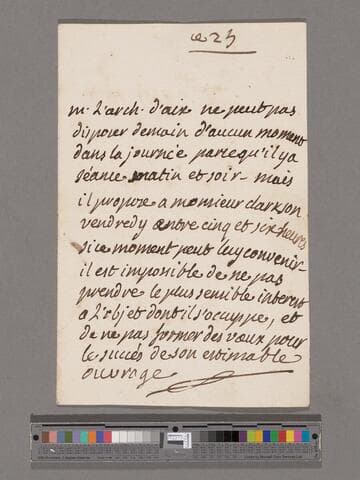 ce 25
m. L'arch. d'aix ne peut pas
disposer demain d'aucun moment
dans la journée parcequ'il ya
séance matin et soir - mais
il propose a monsieur clarkson
vendredy entre cinq et six heures
si ce moment peut luy convenir -
il est impossible de ne pas
prendre le plus sensible interest
a L'objet dont il s'occuppe, et
de ne pas former des vœux pour
le succés de son estimable
ouvrage